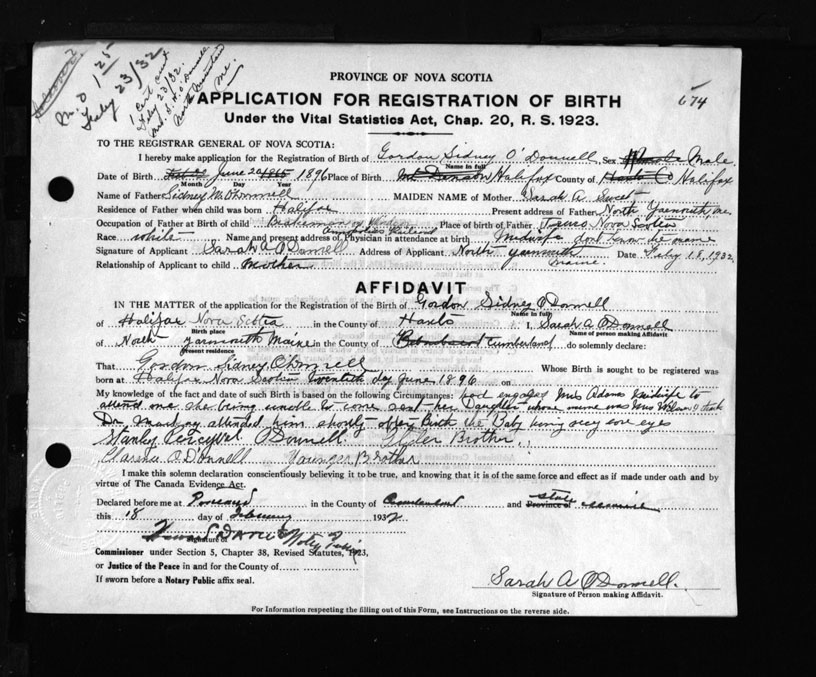 M.O 1.25
July 23/32
1 cert sent
July 23/32
674
PROVINCE OF NOVA SCOTIA
APPLICATION FOR REGISTRATION OF BIRTH
Under the Vital Statistics Act, Chap. 20, R. S. 1923.
TO THE REGISTRAR GENERAL OF NOVA SCOTIA:
I hereby make application for the Registration of Birth of Gordon Sidney O'Donnell Sex Male
Name in full
Date of Birth June 20 1896 Place of Birth Halifax County of Halifax
Month Day Year
Name of Father Sidney O'Donnell MAIDEN NAME of Mother Sarah A Sweet
Residence of Father when child was born Halifax Present address of Father North Yarmouth, Me
Occupation of Father at Birth of Child Place of birth of Father Nova Scotia
Race white Name and present address of Physician in attendance at birth Midwife dont know the name
Signature of Applicant Sarah A O'Donnell Address of Applicant North yarmouth Maine Date Feby 18, 1932
Relationship of Applicant to child mother
AFFIDAVIT
IN THE MATTER of the application for the Registration of the Birth of Gordon Sidney O'Donnell
Name in full
of Halifax Nova Scotia in the County of I, Sarah A O'Donnell
Birth place Name of person making Affidavit
of North yarmouth Maine in the County of Cumberland do solemnly declare:
present residence
That Gordon Sidney O'Donnell Whose Birth is sought to be registered was
born at Halifax Nova Scotia twentith day June 1896 on
My knowledge of the fact and date of such Birth is based on the following Circumstances: had engaged Mrs Adams Midwife to
attend me she being unable to come sent her Daughter whose name was Mrs
Dr. attended him shortly after Birth the Baby having very sore eyes
Stanley Percyval O'Donnell Elder Brother
Clarence O'Donnell Younger Brother
I make this solemn declaration conscientiously believing it to be true, and knowing that it is of the same force and effect as if made under oath and by
virtue of The Canada Evidence Act.
Declared before me at Portland in the County of Cumberland and State Province of Maine
this 18 day of February 1932
Signature of
Commissioner under Section 5, Chapter 38, Revised Statutes, 1923,
or Justice of the Peace in and for the County of
If sworn before a Notary Public affix seal.
Sarah A O'Donnell.
Signature of Person making Affidavit.
For Information respecting the filling out of this Form, see Instructions on the reverse side.